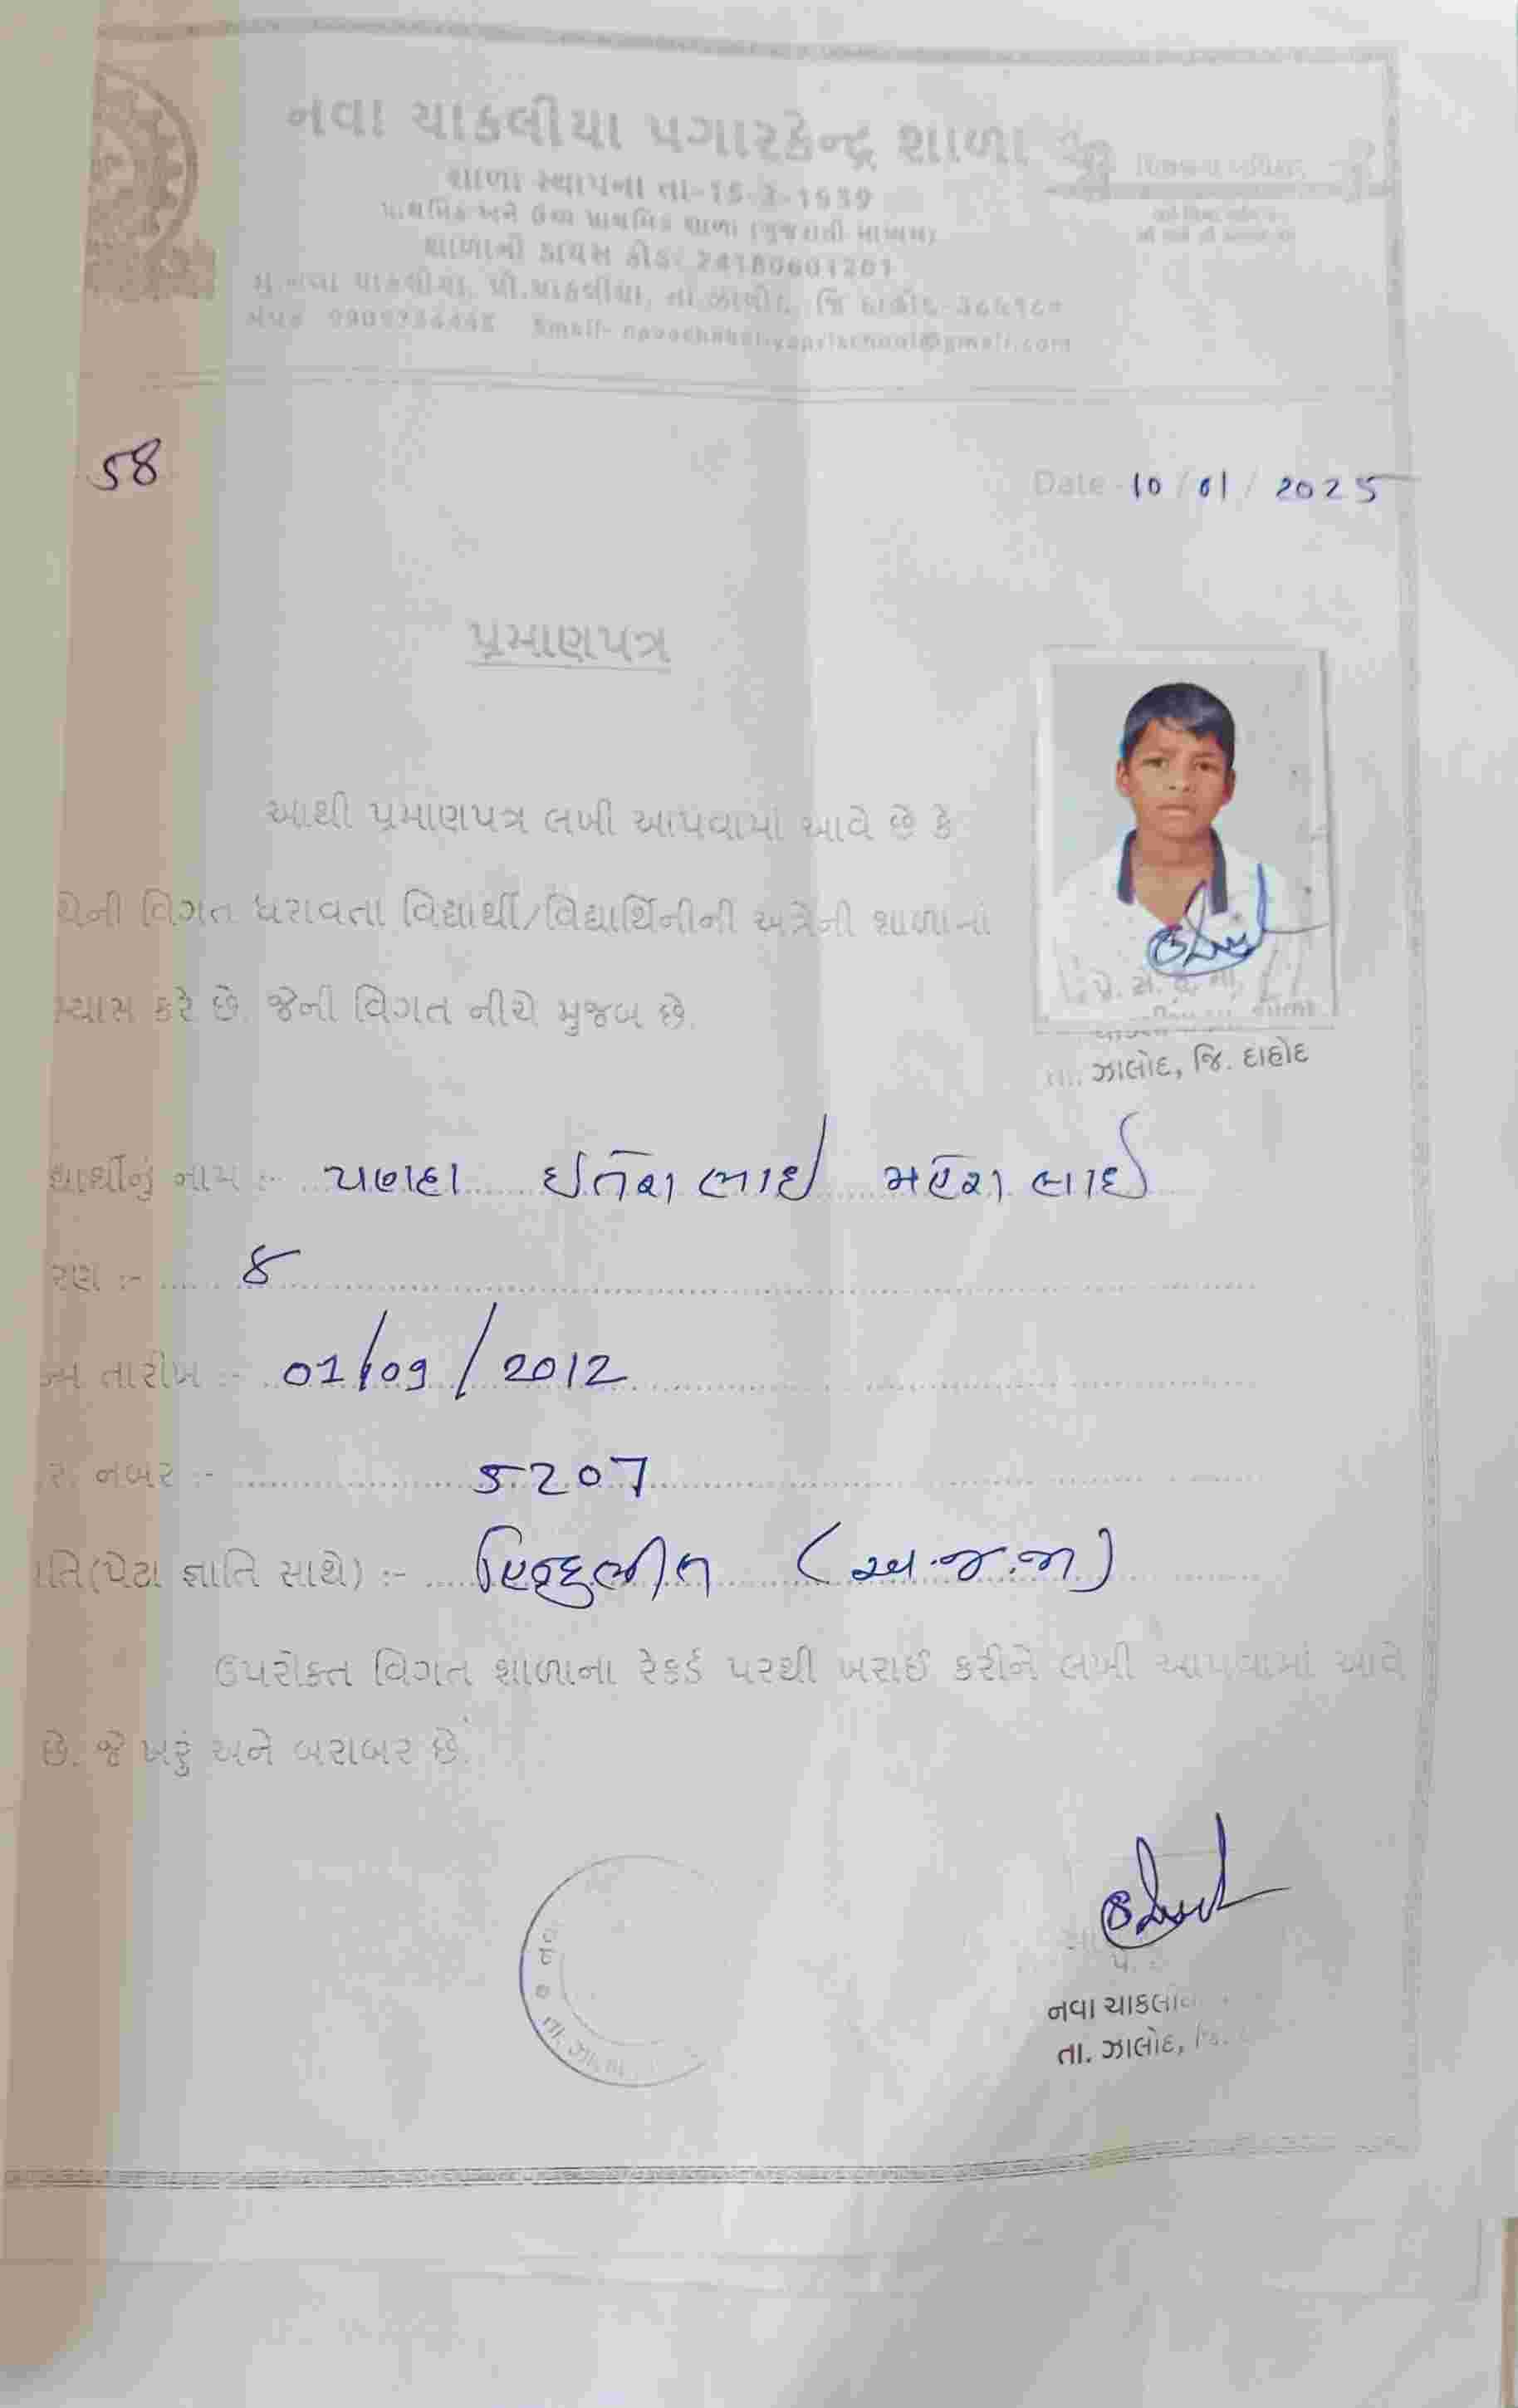 નવા ચાકલીયા પગારકેન્દ્ર શાળા
શાળા સ્થાપના તા-15-3-1939
પ્રાથમિક અને ઉચ્ચ પ્રાથમિક શાળા (ગુજરાતી માધ્યમ)
શાળાનો ડાયસ કોડ: 24180601201
મુ.નવા ચાકલીયા, પો.ચાકલીયા, તા.ઝાલોદ, જિ દાહોદ
Email-
58
Date - 10 / 01 / 2025
પ્રમાણપત્ર
આથી પ્રમાણપત્ર લખી આપવામાં આવે છે કે
ચેની વિગત ધરાવતા વિદ્યાર્થી/વિદ્યાર્થિનીની અત્રેની શાળાનાં
ભ્યાસ કરે છે. જેની વિગત નીચે મુજબ છે.
તા. ઝાલોદ, જિ. દાહોદ
દ્યાર્થીનું નામ :- ભાઈ ભાઈ
રણ :- ૪
ન્મ તારીખ :- 01/09/2012
ર. નંબર :- 5207
તિ(પેટા જ્ઞાતિ સાથે) :- હિન્દુભીલ (અ.જ.જા)
ઉપરોક્ત વિગત શાળાના રેકર્ડ પરથી ખરાઈ કરીને લખી આપવામાં આવે
છે. જે ખરું અને બરાબર છે.
નવા
તા. ઝાલોદ, જિ.